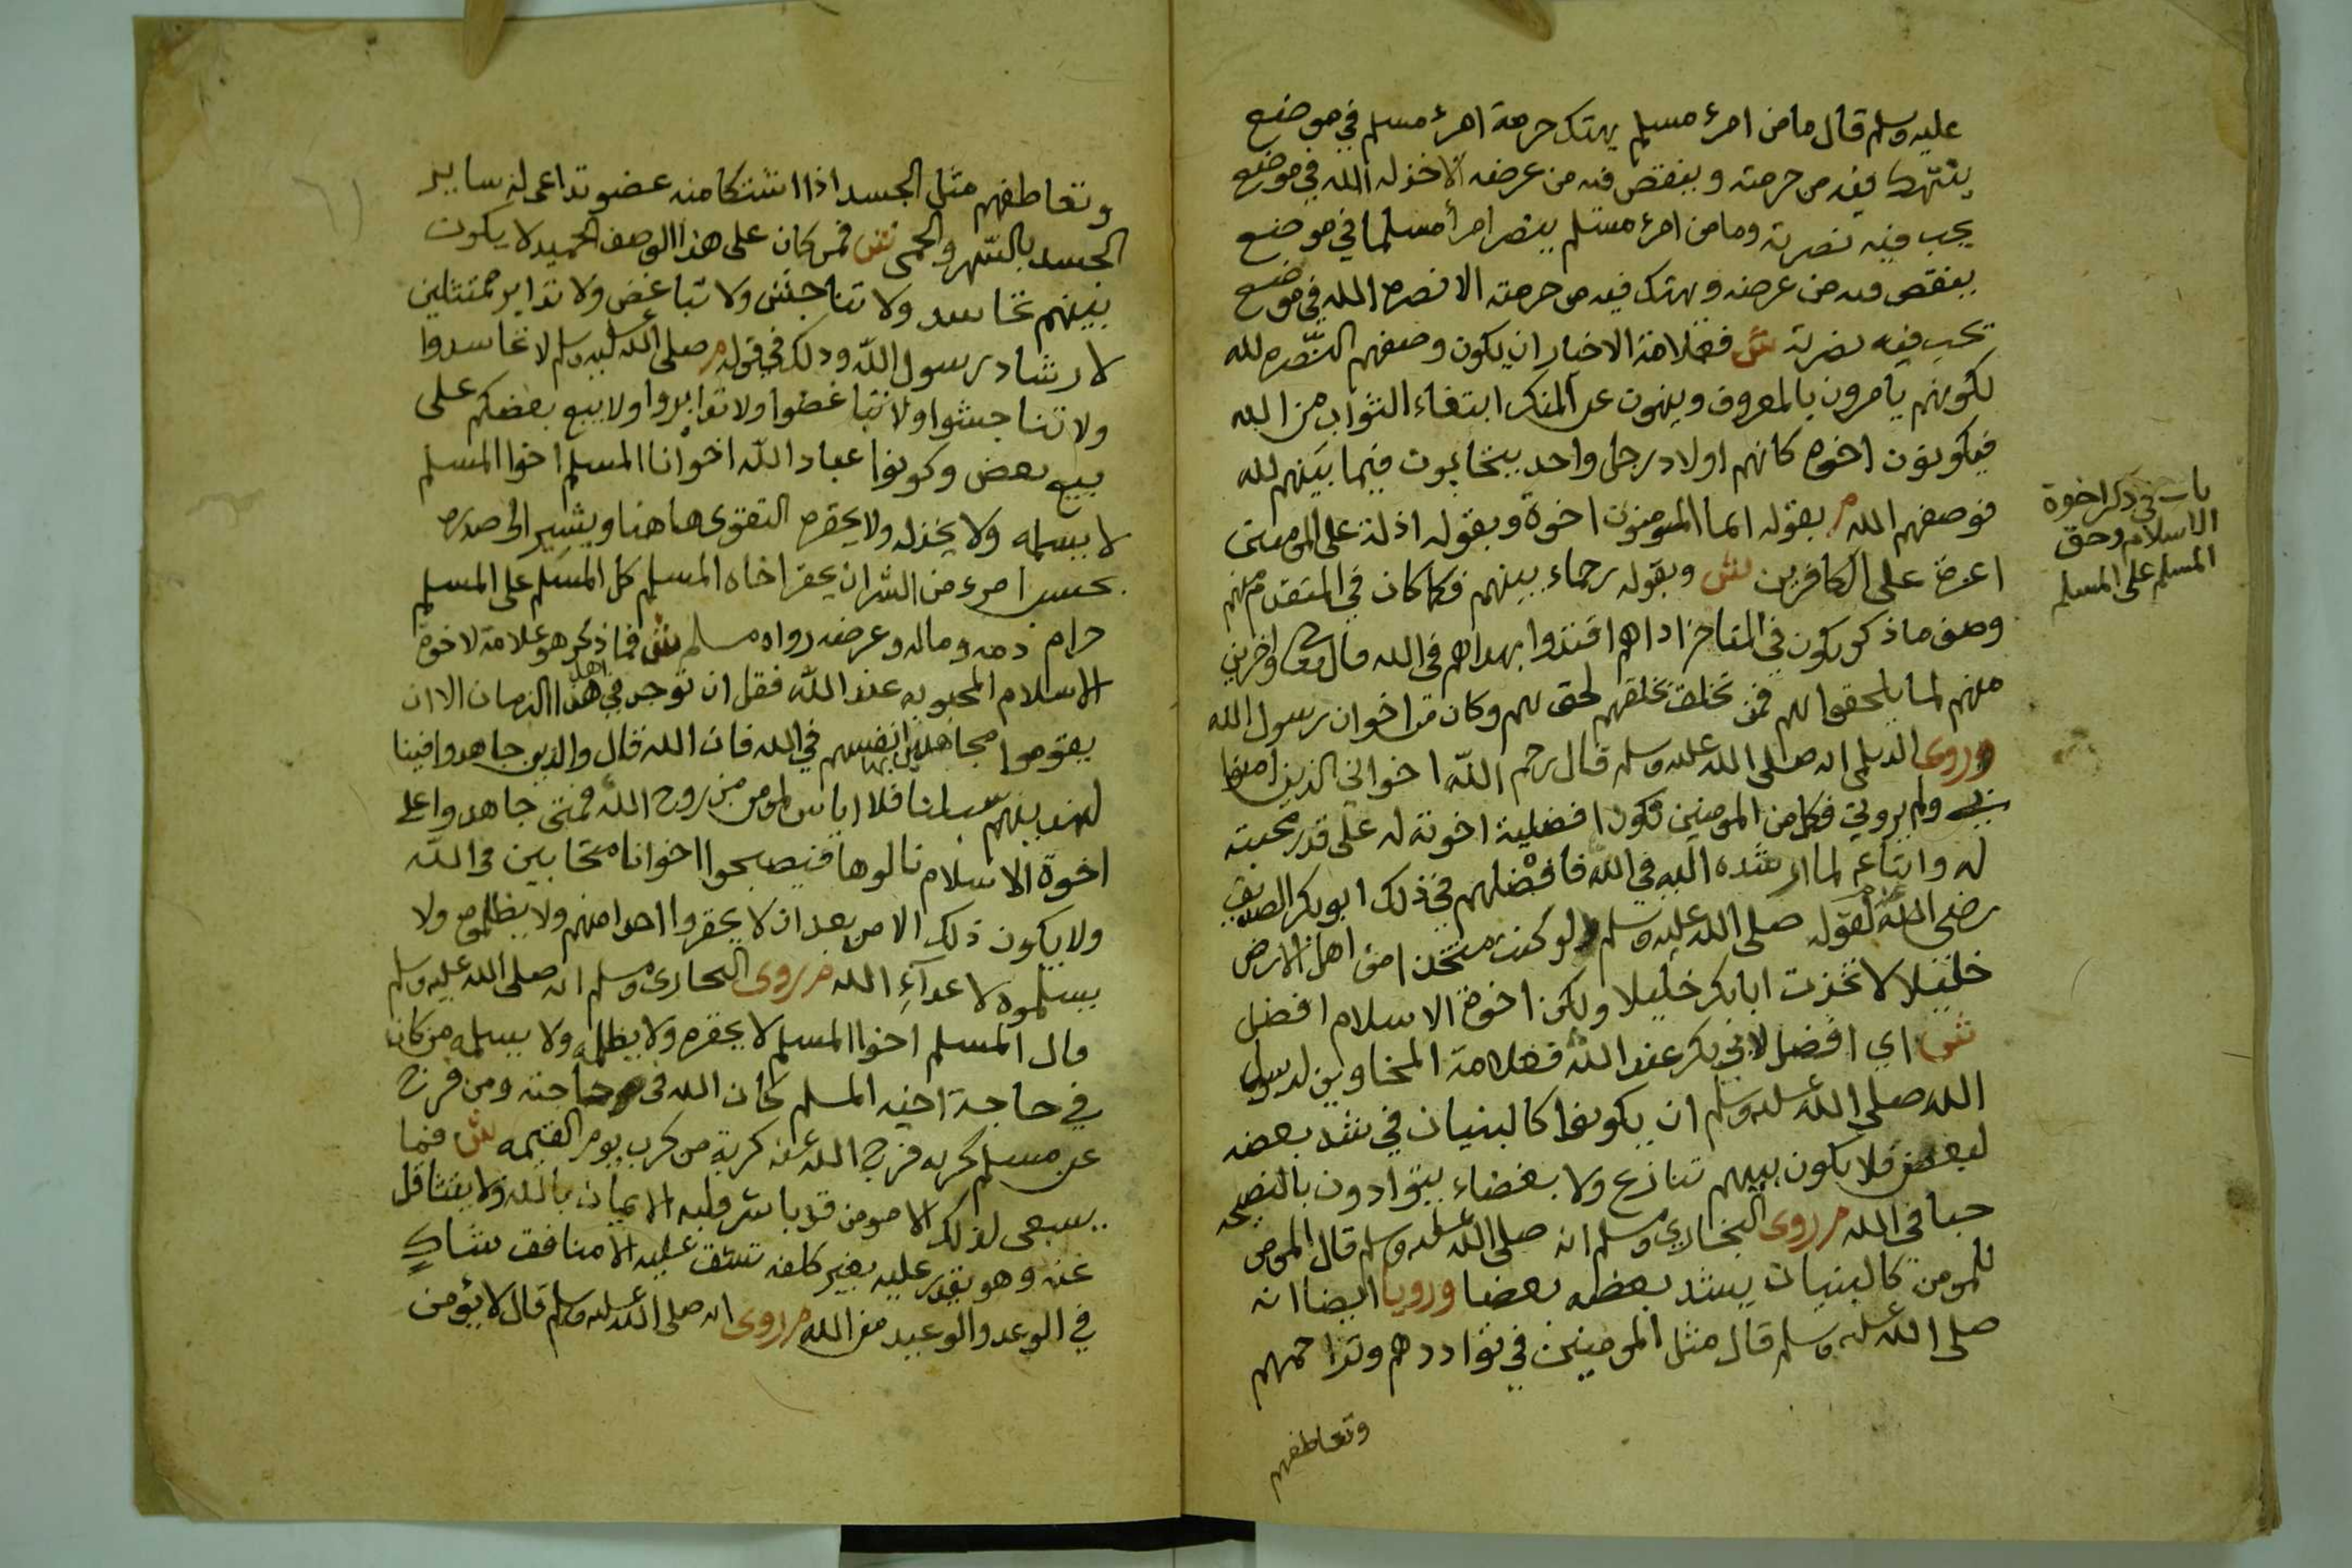 عليه وسلم قال ما من امرء مسلم يهتك حرمة امرء مسلم في موضع
ينتهك فيه من حرمته وينقص فيه من عرضه الا خذله الله في موضع
يحب فيه نصرته وما من امرء مسلم ينصر امرأ مسلما في موضع
ينقص فيه من عرضه ويهتك فيه من حرمته الا نصره الله في موضع
يحب فيه نصرته ش فعلامة الاخيار ان يكون وصفهم النصره لله
لكونهم يامرون بالمعروف وينهون عن المنكر ابتغاء الثواب من الله
فيكونون اخوه كانهم اولاد رجل واحد يتحابون فيما بينهم لله
فوصفهم الله م بقوله انما المومنون اخوة وبقوله اذلة على المومنين
اعزة على الكافرين ش وبقوله رحماء بينهم فكما كان في المتقدم منهم
وصف ما ذكر يكون في المتاخر اذا هم اقتدوا بهداهم في الله قال واخرين
منهم لما يلحقوا بهم فمن تخلق بخلقهم لحق بهم وكان من اخوان رسول الله
وروى الديلمي انه صلى الله عليه وسلم قال رحم الله اخواني الذين امنوا
بي ولم يروني فكل من المومنين تكون افضلية اخوته له على قدر محبته
له واتباعه لما ارشده اليه في الله فافضلهم في ذلك ابو بكر الصديق
رضي الله عنه لقوله صلى الله عليه وسلم لو كنت متخذا من اهل الارض
خليلا لاتخذت ابا بكر خليلا ولكن اخوة الاسلام افضل
ش اي افضل لابي بكر عند الله فعلامة المتاخين لرسول
الله صلى الله عليه وسلم ان يكونوا كالبنيان في شد بعضه
لبعض فلا يكون بينهم تنازع ولا بغضاء يتوادون بالنصيحه
حبا في الله م روى البخاري ومسلم انه صلى الله عليه وسلم قال المومن
للمومن كالبنيان يشد بعضه بعضا ورويا ايضا انه
صلى الله عليه وسلم قال مثل المومنين في تواددهم وتراحمهم
وتعاطفهم
باب في ذكر اخوة
الاسلام وحق
المسلم على المسلم
وتعاطفهم مثل الجسد اذا اشتكا منه عضو تداعى له ساير
الجسد بالسهر والحمى ش فمن كان على هذا الوصف الحميد لا يكون
بينهم تحاسد ولا تناجش ولا تباغض ولا تدابر ممتثلين
لارشاد رسول الله وذلك في قوله م صلى الله عليه وسلم لا تحاسدوا
ولا تناجشوا ولا تباغضوا ولا تدابروا ولا يبيع بعضكم على
بيع بعض وكونوا عباد الله اخوانا المسلم اخوا المسلم
لا يسلمه ولا يخذله ولا يحقره التقوى هاهنا ويشير الى صدره
بحسب امرء من الشر ان يحقر اخاه المسلم كل المسلم على المسلم
حرام دمه وماله وعرضه رواه مسلم ش فما ذكر هو علامة لاخوة
الاسلام المحبوبه عند الله فقل ان توجد في اهل هذا الزمان الا ان
يقوموا مجاهدين انفسهم في الله فان الله قال والذين جاهدوا فينا
لنهدينهم سبلنا فلا اياس لمومن من روح الله فمتى جاهدوا على
اخوة الاسلام نالوها فيصبحوا اخوانا متحابين في الله
ولا يكون ذلك الا من بعد ان لا يحقروا احدا منهم ولا يظلموه ولا
يسلموه لاعدآء الله م روى البخارى ومسلم انه صلى الله عليه وسلم
قال المسلم اخوا المسلم لا يحقره ولا يظلمه ولا يسلمه من كان
في حاجة اخيه المسلم كان الله في حاجته ومن فرج
عن مسلم كربه فرج الله عنه كربة من كرب يوم القيمه ش فما
يسعى لذلك الا مومن قد باشر قلبه الايمان بالله ولا يتثاقل
عنه وهو يقدر عليه بغير كلفه تشق عليه الا منافق شاك
في الوعد والوعيد من الله م روى انه صلى الله عليه وسلم قال لا يؤمن